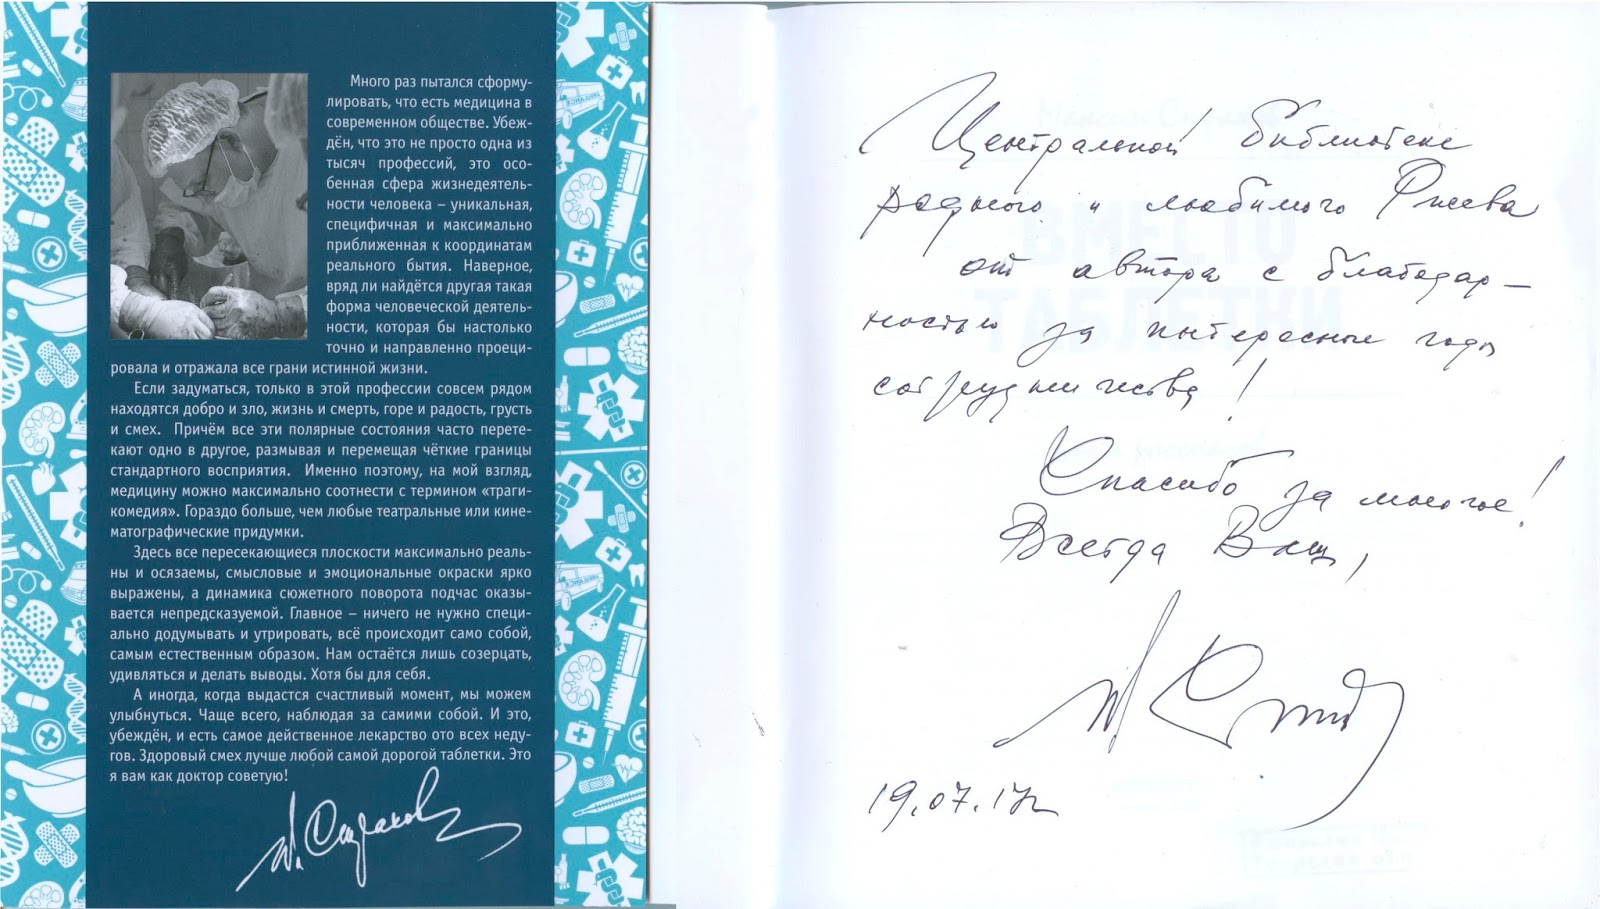 Много раз пытался сформу-
лировать, что есть медицина в
современном обществе. Убеж-
дён, что это не просто одна из
тысяч профессий, это осо-
бенная сфера жизнедеятель-
ности человека – уникальная,
специфичная и максимально
приближенная к координатам
реального бытия. Наверное,
вряд ли найдётся другая такая
форма человеческой деятель-
ности, которая бы настолько
точно и направленно проеци-
ровала и отражала все грани истинной жизни.
Если задуматься, только в этой профессии совсем рядом
находятся добро и зло, жизнь и смерть, горе и радость, грусть
и смех. Причём все эти полярные состояния часто перете-
кают одно в другое, размывая и перемещая чёткие границы
стандартного восприятия. Именно поэтому, на мой взгляд,
медицину можно максимально соотнести с термином «траги-
комедия». Гораздо больше, чем любые театральные или кине-
матографические придумки.
Здесь все пересекающиеся плоскости максимально реаль-
ны и осязаемы, смысловые и эмоциональные окраски ярко
выражены, а динамика сюжетного поворота подчас оказы-
вается непредсказуемой. Главное – ничего не нужно специ-
ально додумывать и утрировать, всё происходит само собой,
самым естественным образом. Нам остаётся лишь созерцать,
удивляться и делать выводы. Хотя бы для себя.
А иногда, когда выдастся счастливый момент, мы можем
улыбнуться. Чаще всего, наблюдая за самими собой. И это,
убеждён, и есть самое действенное лекарство ото всех неду-
гов. Здоровый смех лучше любой самой дорогой таблетки. Это
я вам как доктор советую!
М. Страхов
Центральной библиотеке
родного и любимого Ржева
от автора с благодар-
ностью за интересные годы
сотрудничества!
Спасибо за многое!
Всегда Ваш,
19.07.17г
ВМЕСТО
ТАБЛЕТКИ